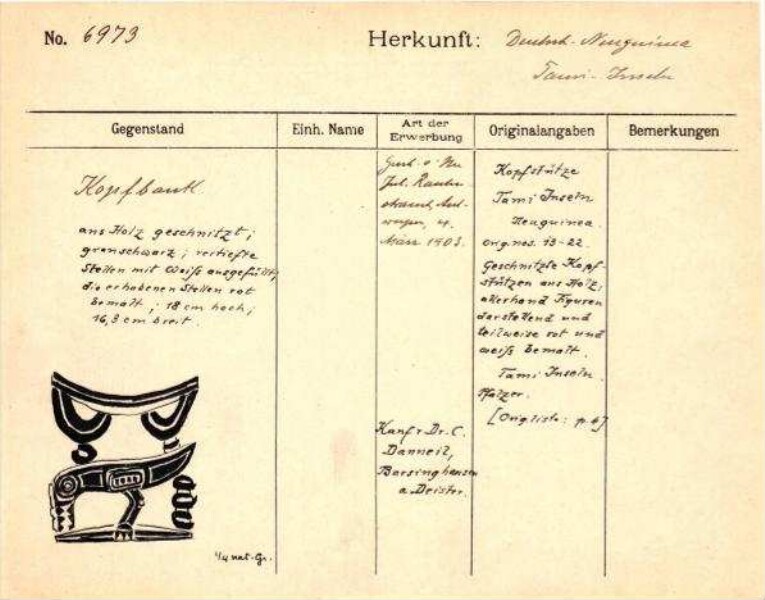 No. 6973
Herkunft: Deutsch-Neuguinea
Tami-Inseln
Gegenstand
Einh. Name
Art der Erwerbung
Originalangaben
Bemerkungen
Kopfbank
aus Holz geschnitzt;
grauschwarz; vertiefte
Stellen mit Weiß ausgefüllt,
die erhobenen Stellen rot
bemalt; 18 cm hoch;
16,3 cm breit.
¼ nat. Gr.
März 1903.
Kauf v Dr. C.
Danneil,
Barsinghausen
a. Deister.
Kopfstütze
Tami Inseln
Neuguinea.
orig. nos. 13-22.
Geschnitzte Kopf-
stützen aus Holz,
allerhand Figuren
darstellend und
teilweise rot und
weiß bemalt.
Tami Inseln.
[Orig. liste: p. 6]